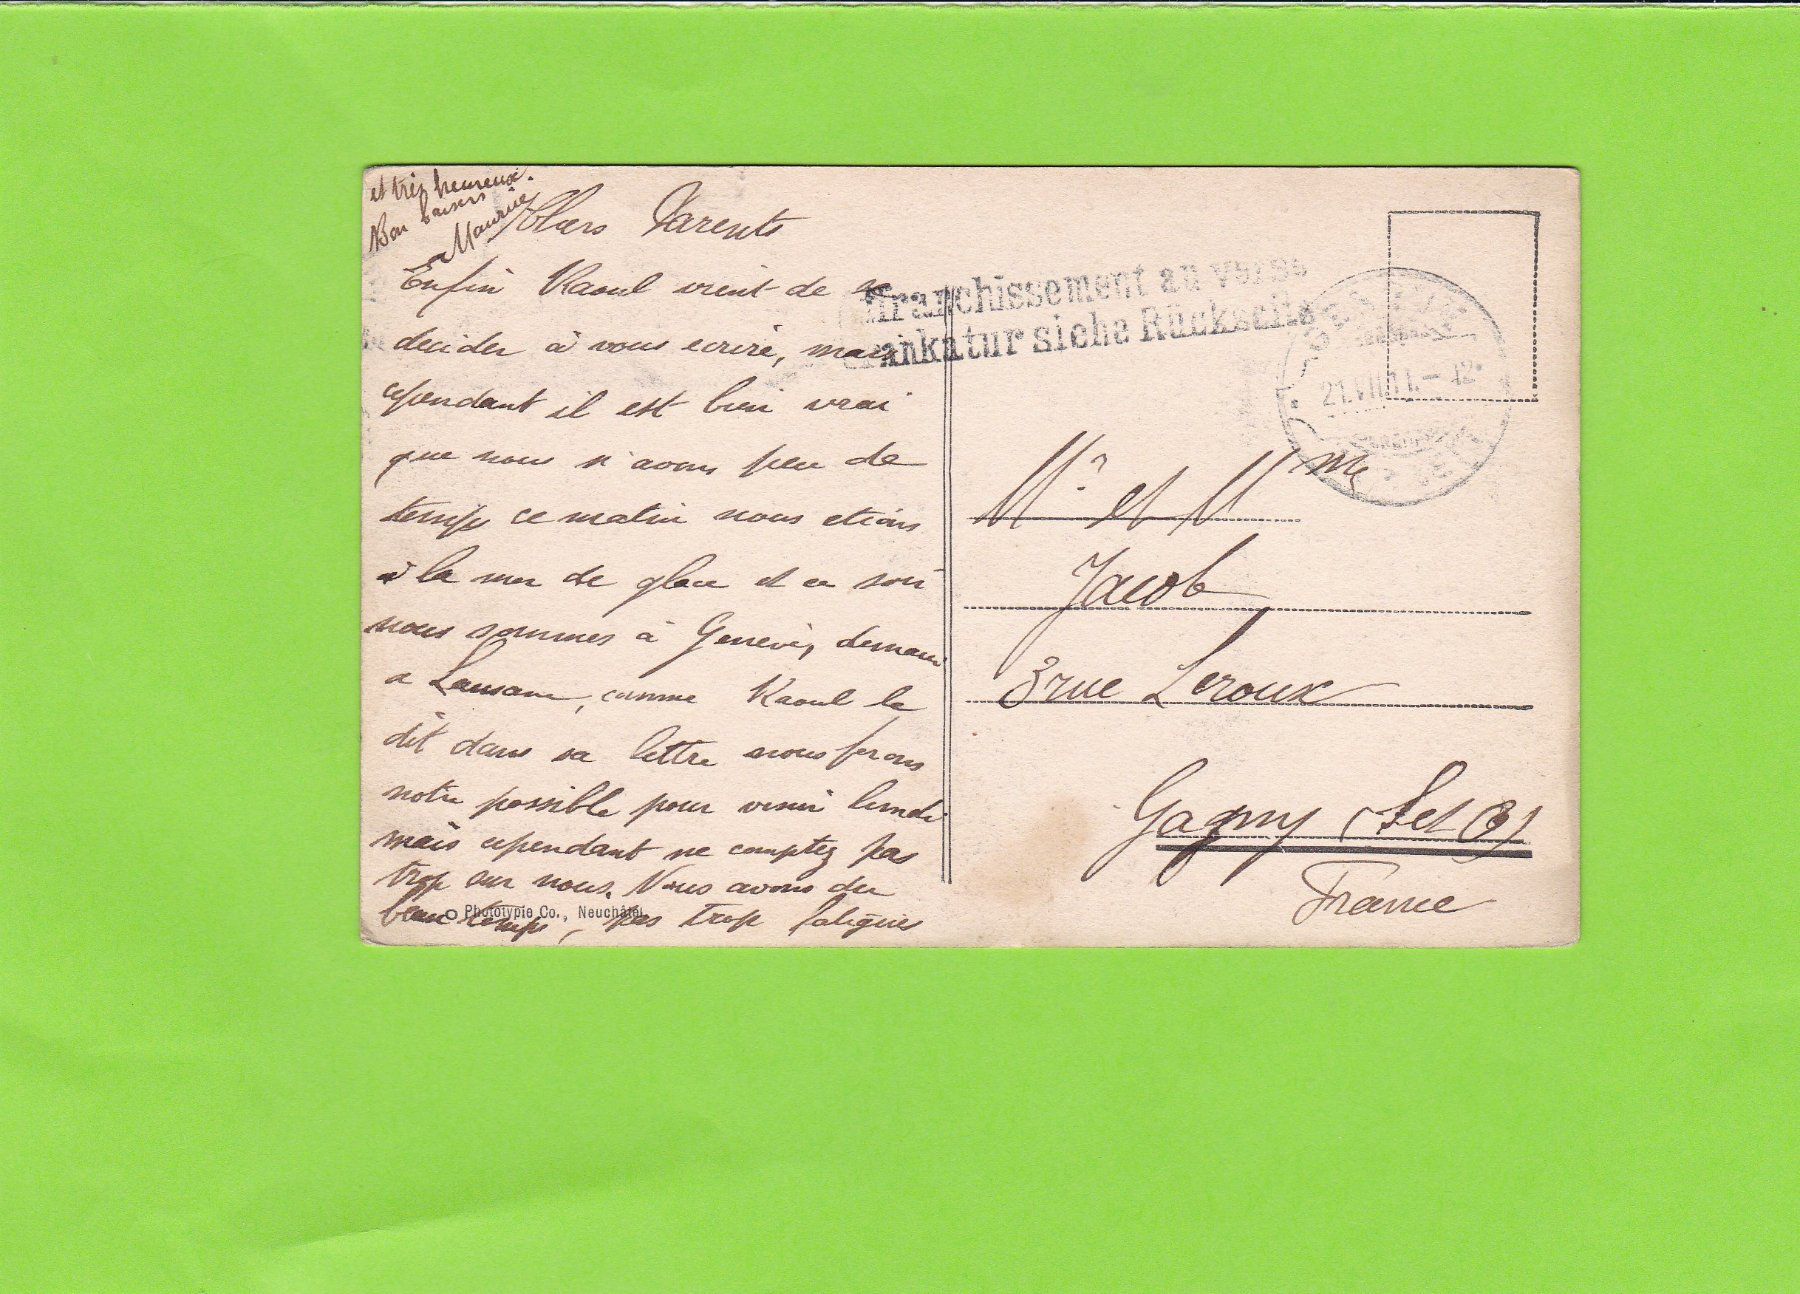 Chers Parents
Enfin Raoul vient de se
decider à vous ecrire, mais
cependant il est bien vrai
que nous n'avons peu de
temps ce matin nous etions
à la mer de glace et ce soir
nous sommes à Geneve, demain
a Lausanne, comme Raoul le
dit dans sa lettre nous ferons
notre possible pour venir lundi
mais cependant ne comptez pas
trop sur nous. Nous avons du
beau temps, pas trop fatigués
et très heureux.
Bon baisers
Maurice
Phototypie Co., Neuchâtel
Affranchissement au verso
Frankatur siehe Rückseite
21.VII.11.-12
Mr et Mme
Jacob
3 rue Leroux
Gagny (S et O)
France